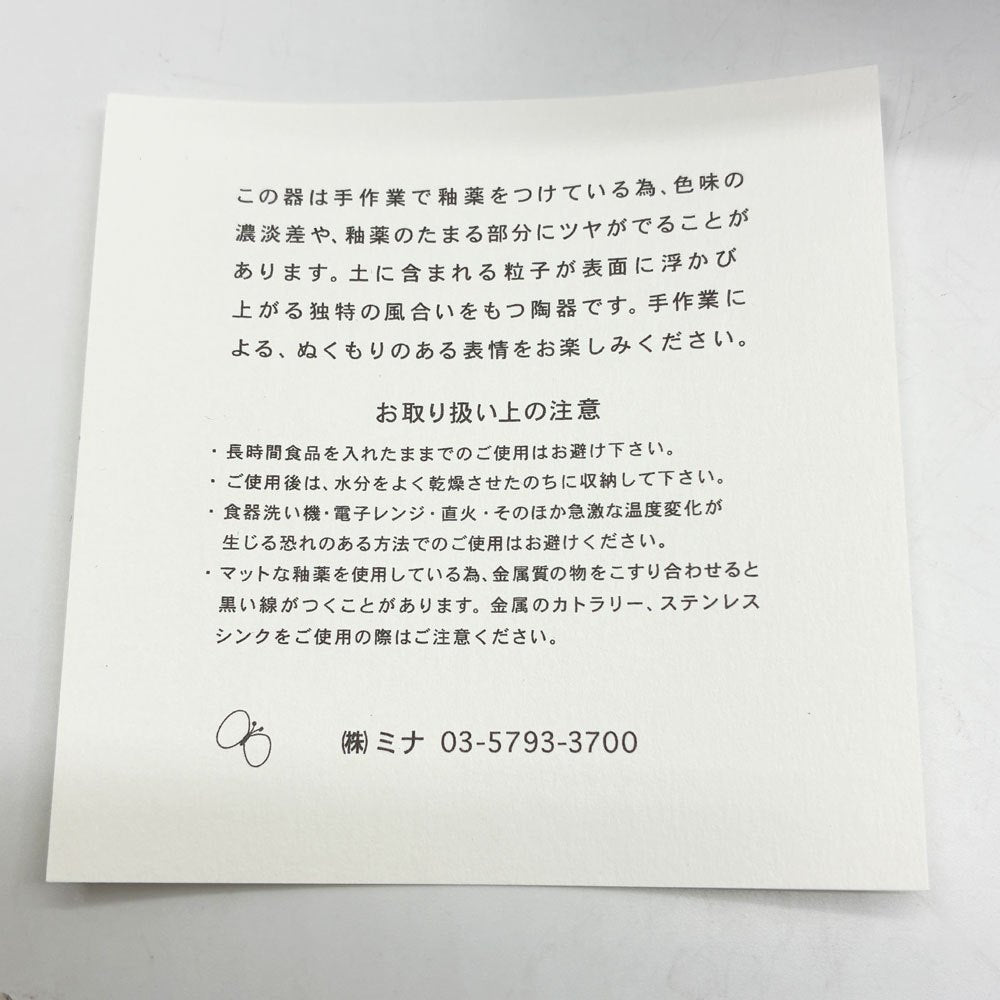 この器は手作業で釉薬をつけている為、色味の
濃淡差や、釉薬のたまる部分にツヤがでることが
あります。土に含まれる粒子が表面に浮かび
上がる独特の風合いをもつ陶器です。手作業に
よる、ぬくもりのある表情をお楽しみください。
お取り扱い上の注意
・長時間食品を入れたままでのご使用はお避け下さい。
・ご使用後は、水分をよく乾燥させたのちに収納して下さい。
・食器洗い機・電子レンジ・直火・そのほか急激な温度変化が
生じる恐れのある方法でのご使用はお避けください。
・マットな釉薬を使用している為、金属質の物をこすり合わせると
黒い線がつくことがあります。金属のカトラリー、ステンレス
シンクをご使用の際はご注意ください。
㈱ミナ 03-5793-3700